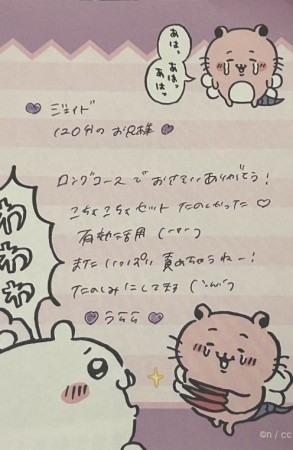 あは、あはっ
あはっ
ジェイド
120分の お兄様
ロングコース で おさそい ありがとう！
こちょこちょ セット たのしかった♡
有効活用
また いっぱい 責めちゃうねー！
たのしみにしてます
うらら
わ
わ
わ
©n / cc